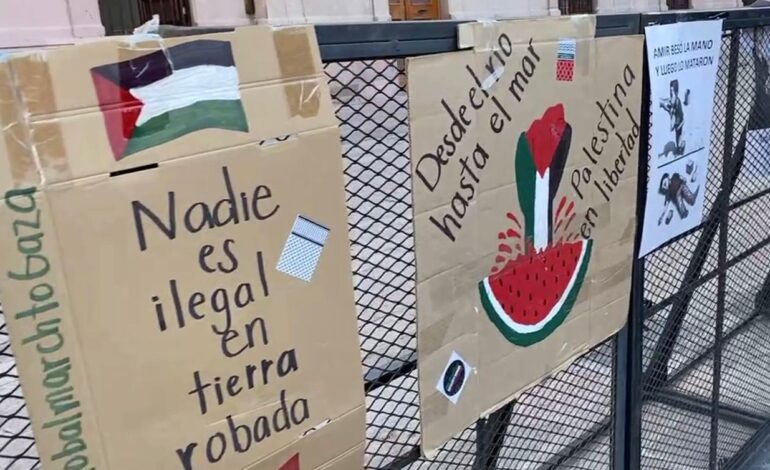 obalmarchtoGaza
Nadie
es
ilegal
en
tierra
robada
Desde el río
hasta el mar
Palestina
en libertad
AMIR BESÓ LA MANO
Y LUEGO LO MATARON